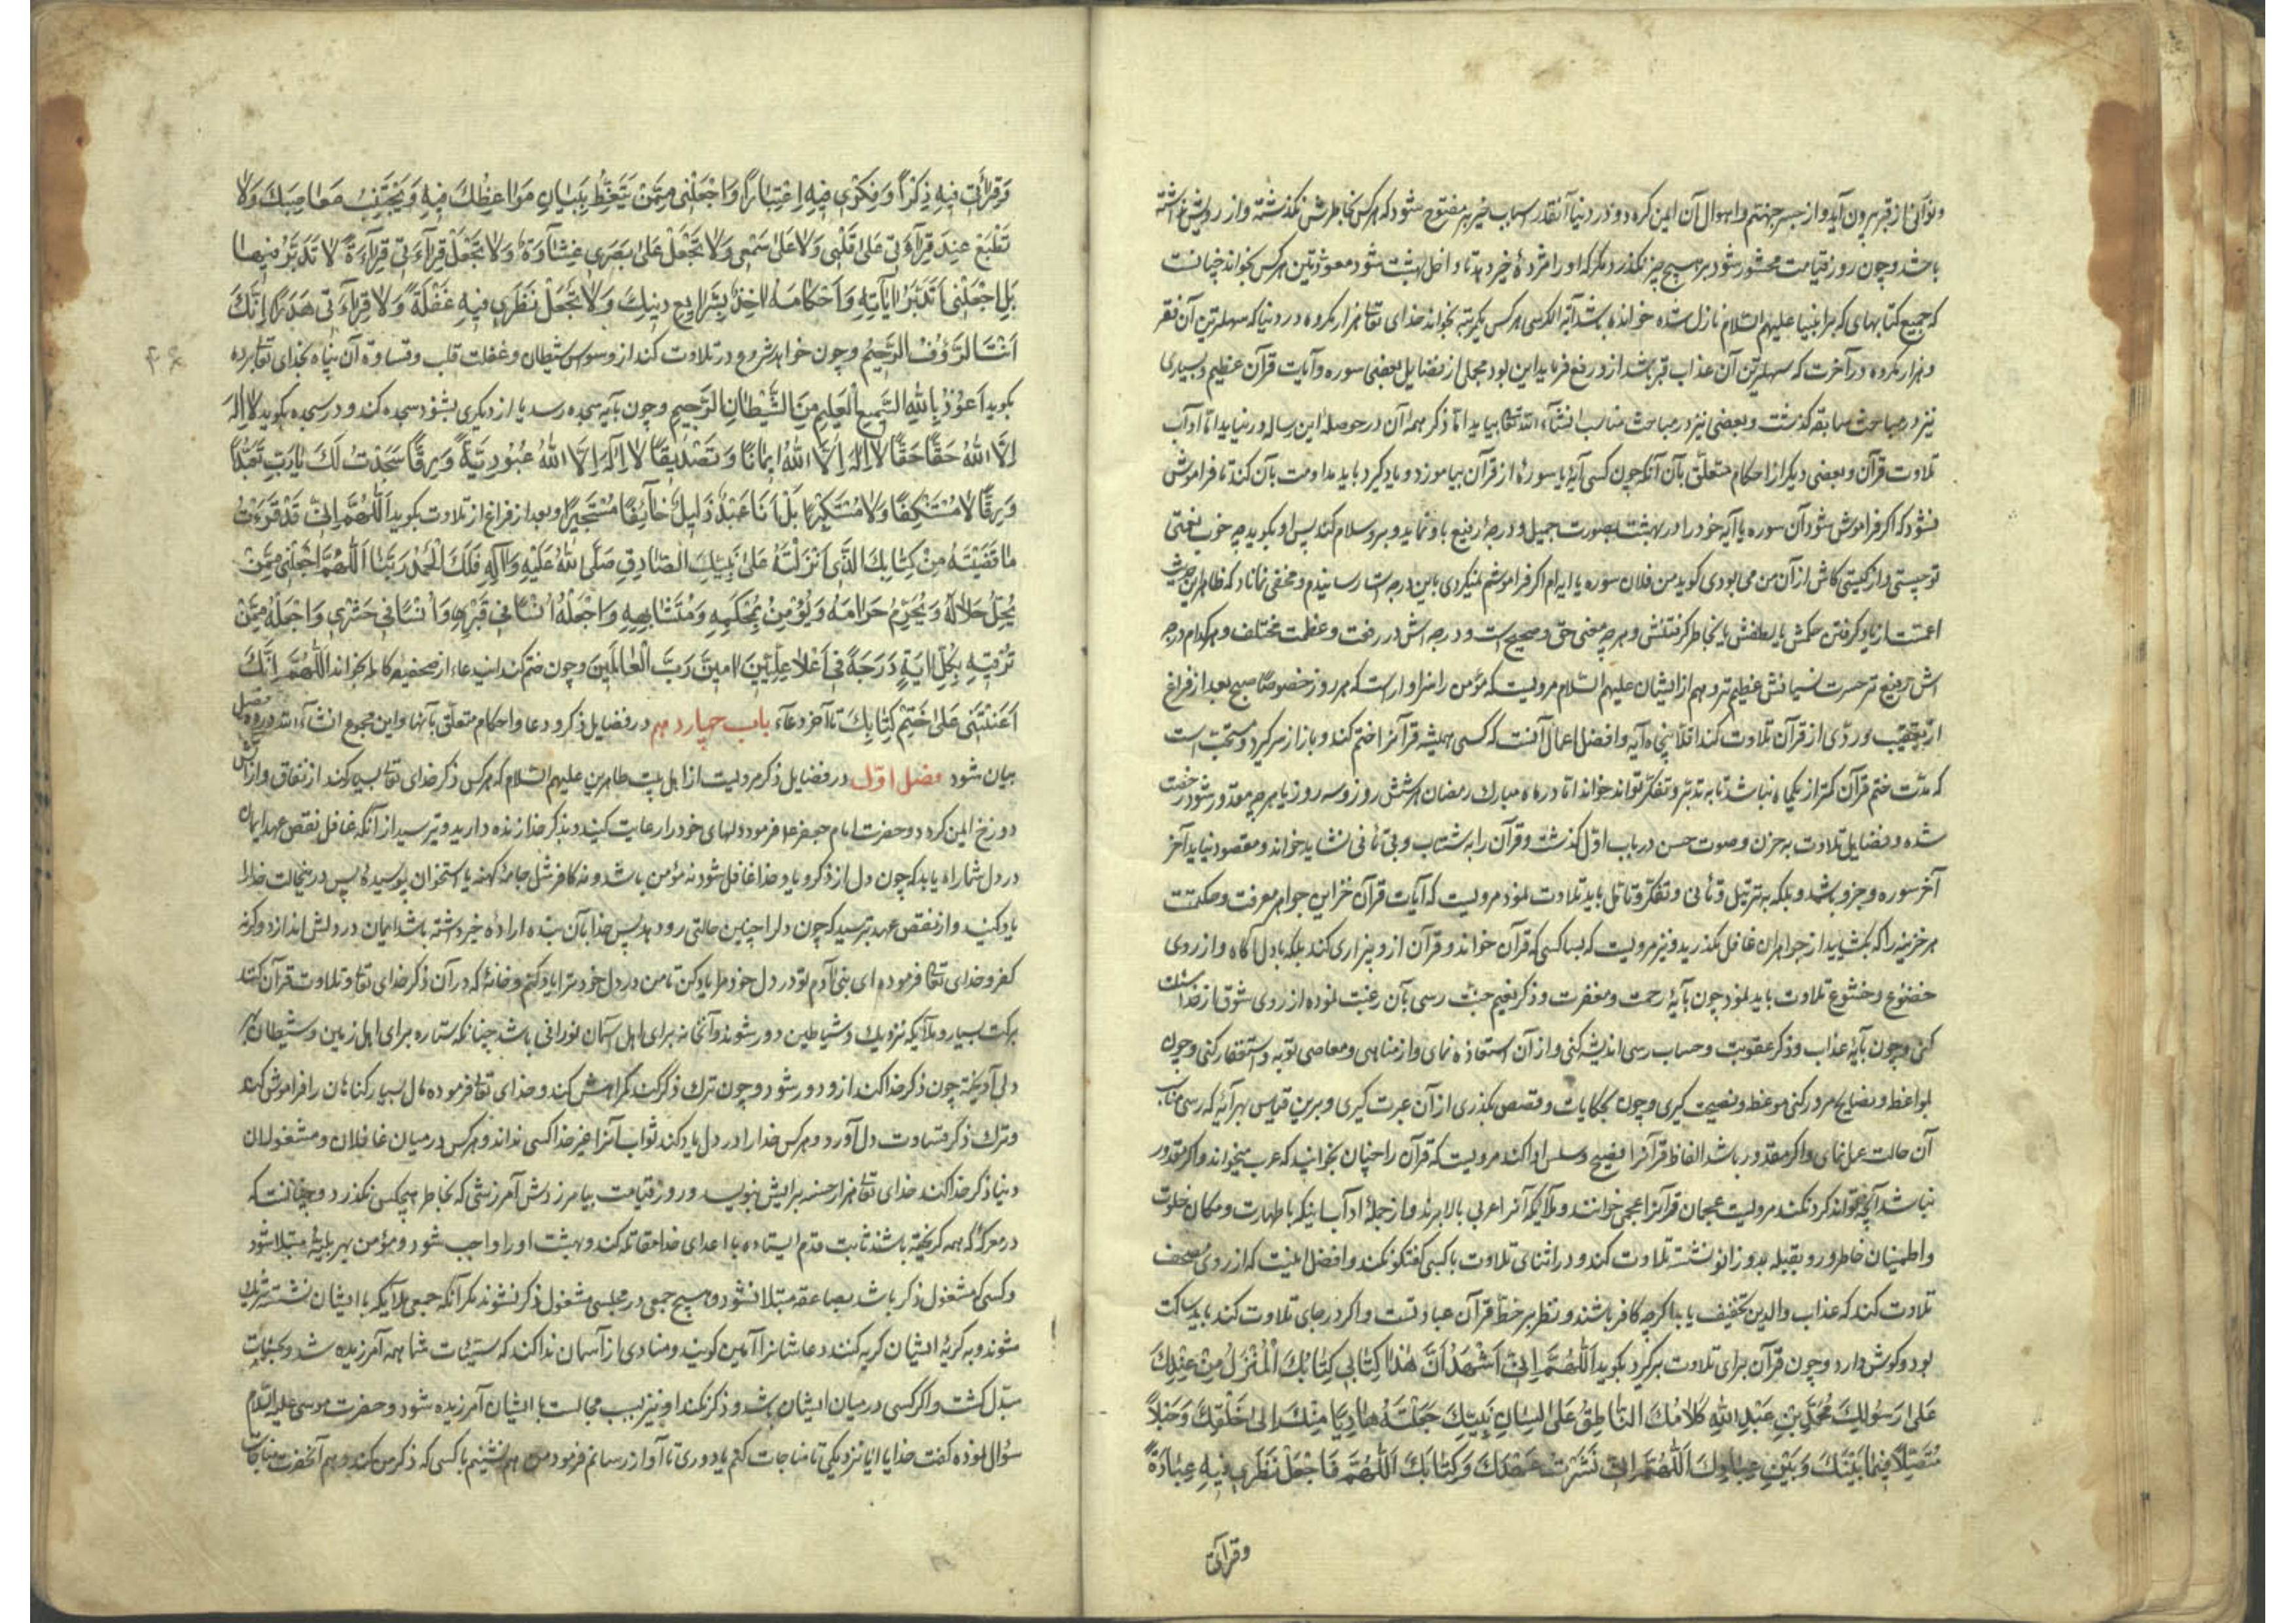 و نورانی از قبر بیرون آید و از جسر جهنم و اهوال آن ایمن کرده و در دنیا آنقدر اسباب خیر بر مفتوح شود که بر کس بخاطرش نگذشته و از رویش
باشد و چون روز قیامت محشور شود بر هیچ چیز نگذرد مگر که او را مژدهٔ خیر دهد تا داخل بهشت شود معوذتین هر کس بخواند چنانست
که جمیع کتابهای که بر انبیا علیهم السّلام نازل شده خوانده باشد آیة الکرسی هر کس یکمرتبه بخواند خدای تعالی هزار مکروه در دنیا که سهلترین آن فقر
و هزار مکروه در آخرت که سهلترین آن عذاب قبر باشد از و رفع فرماید این بود مجملی از فضایل بعضی سوره و آیات قرآن عظیم و بسیاری
نیز در مباحث سابقه گذشت و بعضی نیز در مباحث مناسب انشآء الله تعالی بیاید امّا ذکر همهٔ آن در حوصله این رساله در نیاید امّا آداب
تلاوت قرآن و بعضی دیگر از احکام متعلّق بآن آنکه چون کسی آیهٔ یا سورهٔ از قرآن بیاموزد و یاد گیرد باید مداومت بآن کند تا فراموش
نشود که اگر فراموش شود آن سوره یا آیه خود را در بهشت بصورت جمیل و درجهٔ رفیع باو نماید و برو سلام کند پس او بگوید چه خوب نعمتی
تو چیستی و از کیستی کاش از آن من می بودی گوید من فلان سوره یا ایه ام اگر فراموشم نمیکردی باین درجه ات رسانیدم و مخفی نماند که ظاهر این حدیث
اعمّست از یاد گرفتن حکمش یا لفظش یا بخاطر گرفتنش و هر چه معنی حق و صحیح است و درجه اش در رفعت و عظمت مختلف و هر کدام درجه
اش رفیع تر حسرت نسیانش عظیم تر و هم از ایشان علیهم السّلام مرویست که مؤمن را سزاوار است که هر روز خصوصًا صبح بعد از فراغ
از تعقیب وردی از قرآن تلاوت کند اقلّا پنجاه آیه و افضل اعمال آنست که کسی همیشه قرآنرا ختم کند و باز از سر گیرد و مستحبّ است
که مدّت ختم قرآن کمتر از یکماه نباشد تا به تدبّر و تفکّر تواند خواند امّا در ماه مبارک رمضان هر شش روز و سه روز یا هر چه مقدور شود رخصت
شده و فضایل تلاوت به حزن و صوت حسن در باب اوّل گذشت و قرآن را به شتاب و بی تأنی نشاید خواند و مقصود نباید آخر
آخر سوره و جزو باشد و بلکه به ترتیل و تأنی و تفکّر و تأمّل باید تلاوت نمود مرویست که آیات قرآن خزاین جواهر معرفت و حکمتست
هر خزینه را که بگشایید از جواهر آن غافل مگذرید و نیز مرویست که بسا کسی که قرآن خواند و قرآن از و بیزاری کند بلکه با دل آگاه و از روی
خضوع و خشوع تلاوت باید نمود چون بآیهٔ رحمت و مغفرت و ذکر نعیم جنّت رسی بآن رغبت نموده از روی شوق از خدا مسئلت
کنی و چون بآیهٔ عذاب و ذکر عقوبت و حساب رسی اندیشه کنی و از آن استعاذه نمای و از مناهی و معاصی توبه و استغفار کنی و چون
بمواعظ و نصایح مرور کنی موعظ و نصیحت گیری و چون بحکایات و قصص بگذری از آن عبرت گیری و برین قیاس بهر آیهٔ که رسی مناسب
آن حالت عمل نمای و اگر مقدور باشد الفاظ قرآنرا فصیح و سلس ادا کند مرویست که قرآن را چنان بخوانید که عرب میخواند و اگر مقدور
نباشد آنچه تواند کرد بکند مرویست عجمان قرآنرا عجمی خوانند و ملآیکه آنرا عربی بالا برند و از جملهٔ آداب اینکه با طهارت و مکان خلوت
و اطمینان خاطر و رو بقبله بدو زانو نشسته تلاوت کند و در اثنای تلاوت با کسی گفتگو نکند و افضل اینست که از روی مصحف
تلاوت کند که عذاب والدین تخفیف یابد اگر چه کافر باشند و نظر بر خطّ قرآن عبادتست و اگر در جای تلاوت کند باید ساکت
بود و گوش دارد و چون قرآن برای تلاوت برگیرد بگوید اَللّٰهُمَّ اِنّی اَشْهَدُ اَنَّ هٰذا کِتٰابُکَ الْمُنْزَلُ مِنْ عِنْدِکَ
عَلیٰ رَسُولِکَ مُحَمَّدِ بْنِ عَبْدِ اللّٰهِ کَلامُکَ النّٰاطِقُ عَلیٰ لِسٰانِ نَبِیِّکَ جَعَلْتَهُ هٰادِیًا مِنْکَ اِلیٰ خَلْقِکَ وَحَبْلاً
مُتَّصِلاً فِیمٰا بَیْنَکَ وَ بَیْنَ عِبٰادِکَ اَللّٰهُمَّ اِنّی نَشَرْتُ عَهْدَکَ وَ کِتٰابَکَ اَللّٰهُمَّ فَاجْعَلْ نَظَری فیهِ عِبٰادَةً
وقرآئتی
وَ قِرٰأَتی فیهِ ذِکْرًا وَ فِکْری فیهِ اِعْتِبٰارًا وَ اجْعَلْنی مِمَّنْ یَتَّعِظُ بِبَیٰانِ مَوٰاعِظِکَ فیهِ وَ یَجْتَنِبُ مَعٰاصیکَ وَلاٰ
تَطْبَعْ عِنْدَ قِرٰآءَتی عَلیٰ قَلْبی وَلاٰ عَلیٰ سَمْعی وَلاٰ تَجْعَلْ عَلیٰ بَصَری غِشٰاوَةً وَلاٰ تَجْعَلْ قِرٰآءَتی قِرٰآءَةً لاٰ تَدَبُّرَ فیهٰا
بَلِ اجْعَلْنی اَتَدَبَّرُ اٰیٰاتِهِ وَ اَحْکٰامَهُ اٰخِذًا بِشَرٰایِعِ دینِکَ وَلاٰ تَجْعَلْ نَظَری فیهِ غَفْلَةً وَلاٰ قِرٰآءَتی هَذَرًا اِنَّکَ
اَنْتَ الرَّؤُفُ الرَّحیمُ و چون خواهد شروع در تلاوت کند از وسوس شیطان و غفلت قلب و قساوة آن پناه بخدای تعالی برده
بگوید اَعُوذُ بِاللّٰهِ السَّمیعِ الْعَلیمِ مِنَ الشَّیْطٰانِ الرَّجیمِ و چون بآیه سجده رسد یا از دیگری بشنود سجده کند و در سجده بگوید لاٰ اِلٰهَ
اِلَّا اللّٰهُ حَقًّا حَقًّا لاٰ اِلٰهَ اِلَّا اللّٰهُ ایمٰانًا وَ تَصْدیقًا لاٰ اِلٰهَ اِلَّا اللّٰهُ عُبُودِیَّةً وَ رِقًّا سَجَدْتُ لَکَ یٰا رَبِّ تَعَبُّدًا
وَ رِقًّا لاٰ مُسْتَنْکِفًا وَلاٰ مُسْتَکْبِرًا بَلْ اَنَا عَبْدٌ ذَلیلٌ خٰآئِفًا مُسْتَجیرًا و بعد از فراغ از تلاوت بگوید اَللّٰهُمَّ اِنّی قَدْ قَرَءْتُ
مٰا قَضَیْتَهُ مِنْ کِتٰابِکَ الَّذی اَنْزَلْتَهُ عَلیٰ نَبِیِّکَ الصّٰادِقِ صَلَّی اللّٰهُ عَلَیْهِ وَ اٰلِهِ فَلَکَ الْحَمْدُ رَبَّنٰا اَللّٰهُمَّ اجْعَلْنی مِمَّنْ
یُحِلُّ حَلاٰلَهُ وَ یُحَرِّمُ حَرٰامَهُ وَ یُؤْمِنُ بِمُحْکَمِهِ وَ مُتَشٰابِهِهِ وَ اجْعَلْهُ اُنْسًا فی قَبْری وَ اُنْسًا فی حَشْری وَ اجْعَلْهُ مِمَّنْ
تُرَقّیهِ بِکُلِّ اٰیَةٍ دَرَجَةً فی اَعْلاٰ عِلِّیّینَ اٰمینَ رَبَّ الْعٰالَمینَ و چون ختم کند ایندعاء از صحیفهٔ کامله بخواند اَللّٰهُمَّ اِنَّکَ
اَعَنْتَنی عَلیٰ خَتْمِ کِتٰابِکَ تا آخر دعآء باب چهاردهم در فضایل ذکر و دعا و احکام متعلّق بآنها و این مجموع انشآء الله در دو فصل
بیان شود فصل اوّل در فضایل ذکر مرویست از اهل بیت طاهرین علیهم السّلام که هر کس ذکر خدای تعالی بسیار کند از نفاق و از آتش
دوزخ ایمن گردد و حضرت امام جعفر ع فرمود دلهای خود را رعایت کنید و بذکر خدا زنده دارید و بترسید از آنکه غافل نقص عهد ایمان
در دل شما راه یابد که چون دل از ذکر و یاد خدا غافل شود نه مؤمن باشد و نه کافر مثل جامهٔ کهنه یا استخوان پوسیده پس در حالت خدا را
یاد کنید و از نقص عهد بترسید که چون دلرا چنین حالتی رو دهد پس خدا بآن بنده ارادهٔ خیر داشته باشد ایمان در دلش اندازد و گرنه
کفر و خدای تعالی فرموده ای بنی آدم تو در دل خود مرا یاد کن تا من در دل خود ترا یاد کنم و خانهٔ که در آن ذکر خدای تعالی و تلاوت قرآن کنند
برکت بسیار و ملآیکه نزدیک و شیاطین دور شوند و آنخانه برای اهل آسمان نورانی باشد چنانکه ستاره برای اهل زمین و شیطان
دلی آویخته چون ذکر خدا کند از و دور شود و چون ترک ذکر کند گمراهش کند و خدای تعالی فرموده مال بسیار گناهان را فراموش کند
و ترک ذکر قساوت دل آورد و هر کس خدا را در دل یاد کند ثواب آنرا غیر خدا کسی نداند و هر کس در میان غافلان و مشغولان
دنیا ذکر خدا کند خدای تعالی هزار حسنه برایش بنویسد و روز قیامت بیامرزدش آمرزشی که بخاطر هیچکس نگذرد و چنانست که
در معرکهٔ که همه گریخته باشند ثابت قدم ایستاده با اعدای خدا مقاتله کند و بهشت او را واجب شود و مؤمن بهر بلیهٔ مبتلا شود
و کسی که مشغول ذکر باشد بصاعقه مبتلا نشود و هیچ جمعی در مجلسی مشغول ذکر نشوند مگر آنکه جمعی ملآیکه با ایشان نشسته شریک
شوند و به گریهٔ ایشان گریه کنند دعاشانرا آمین گویند و منادی از آسمان ندا کند که سیّئات شما همه آمرزیده شد و بحسنات
مبدّل گشت و اگر کسی در میان ایشان باشد و ذکر نکند او نیز بسبب مجالست با ایشان آمرزیده شود و حضرت موسی علیه السّلام
سؤال نموده گفت خدایا ایا نزدیکی تا مناجات کنم یا دوری تا آواز رسانم فرمود من همنشینم با کسی که ذکر من کند و هم آنحضرت مناجات